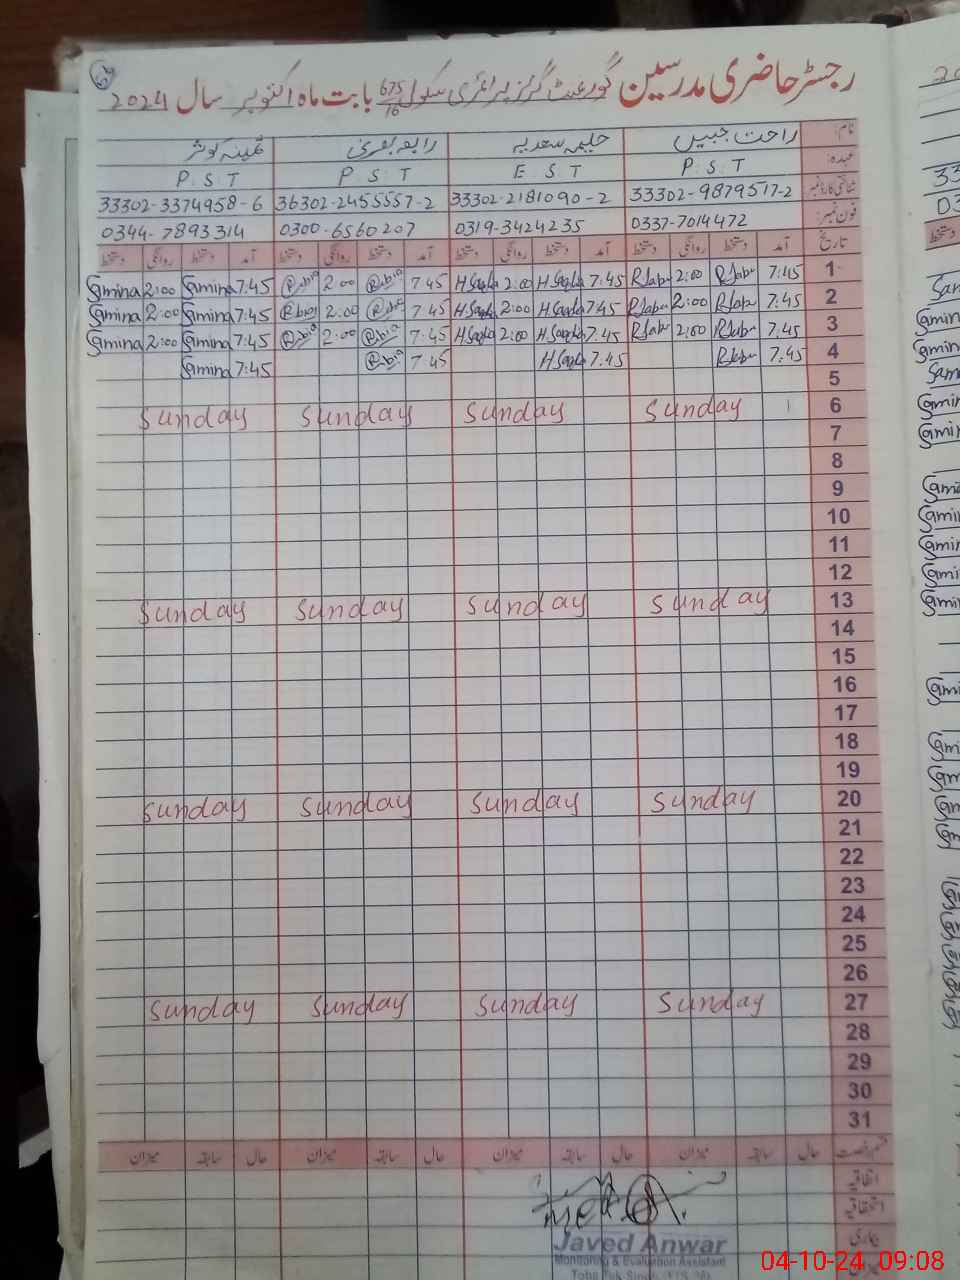 رجسٹر حاضری مدرسین گورنمنٹ گرلز پرائمری سکول 675/16 بابت ماہ اکتوبر سال 2024
نام: راحت جبیں حلیمہ سعدیہ رابعہ بصری ثمینہ کوثر
عہدہ: P.S.T E.S.T P.S.T P.S.T
شناختی کارڈ نمبر 33302-9879517-2 33302-2181090-2 36302-2455557-2 33302-3374958-6
فون نمبر: 0337-7014472 0319-3424235 0300-6560207 0344-7893314
تاریخ آمد دستخط روانگی دستخط آمد دستخط روانگی دستخط آمد دستخط روانگی دستخط آمد دستخط روانگی دستخط
1 7:45 2:00 7:45 H Sadia 2:00 H Sadia 7:45 Rabia 2:00 Rabia 7:45 Samina 2:00 Samina
2 7:45 2:00 7:45 H Sadia 2:00 H Sadia 7:45 Rabia 2:00 Rabia 7:45 Samina 2:00 Samina
3 7:45 2:00 7:45 H Sadia 2:00 H Sadia 7:45 Rabia 2:00 Rabia 7:45 Samina 2:00 Samina
4 7:45 7:45 H Sadia 7:45 Rabia 7:45 Samina
5
6 Sunday Sunday Sunday Sunday
7
8
9
10
11
12
13 Sunday Sunday Sunday Sunday
14
15
16
17
18
19
20 Sunday Sunday Sunday Sunday
21
22
23
24
25
26
27 Sunday Sunday Sunday Sunday
28
29
30
31
قسم رخصت حال سابقہ میزان حال سابقہ میزان حال سابقہ میزان حال سابقہ میزان
اتفاقیہ
استحقاقیہ
Javed Anwar
Monitoring & Evaluation Assistant
04-10-24 09:08